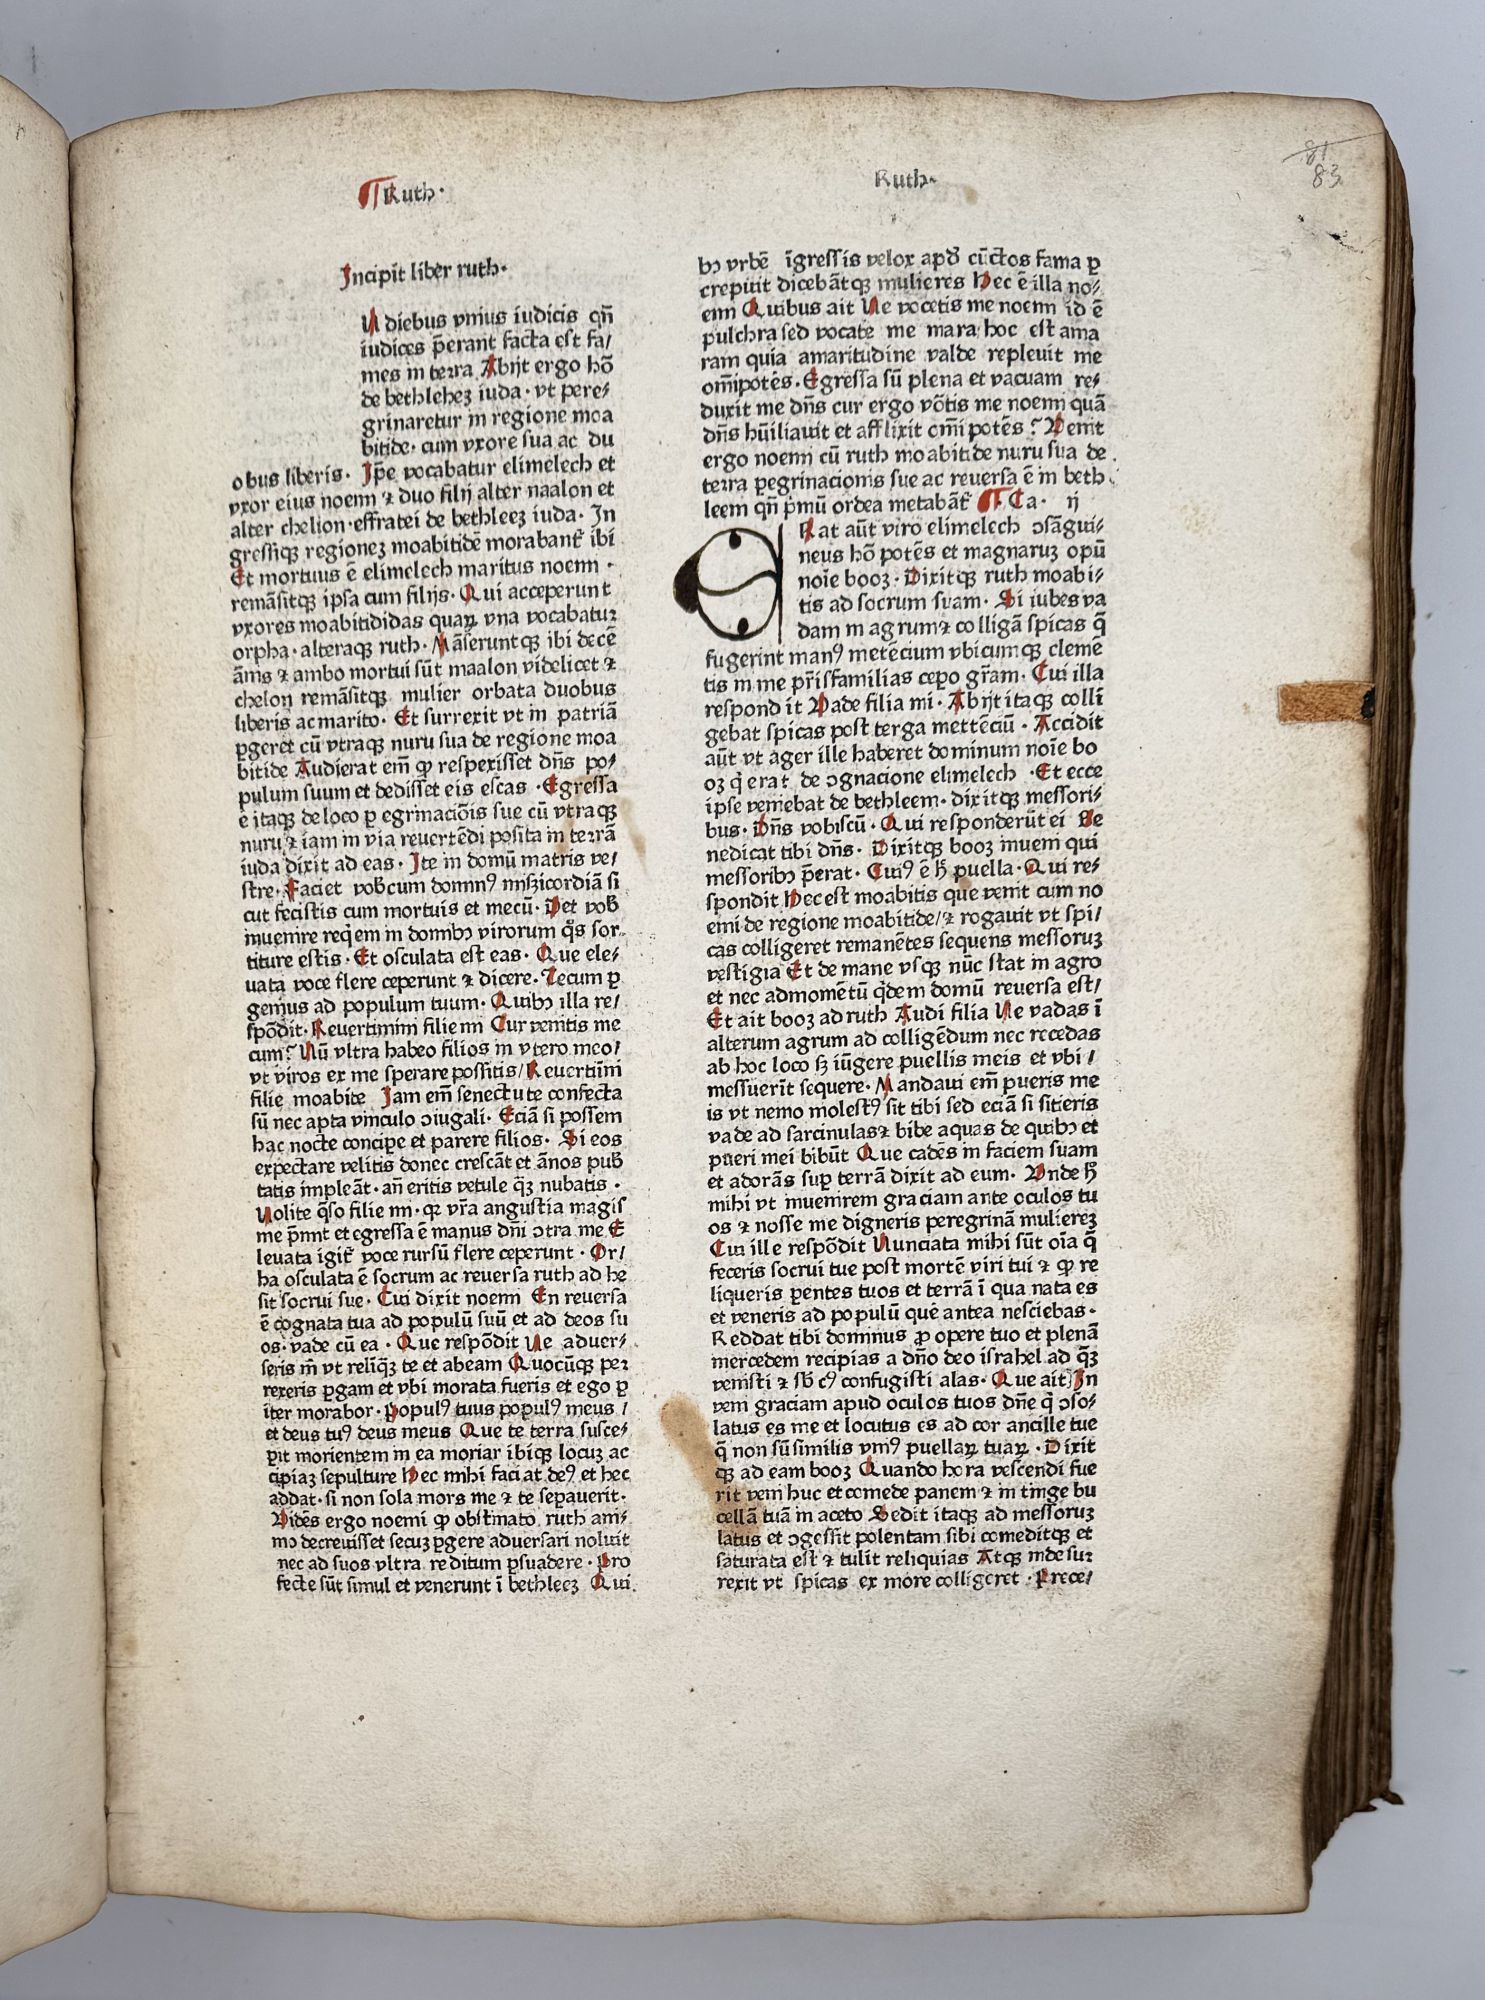 81
83
Ruth·
Ruth·
Incipit liber ruth·
N diebus vnius iudicis qn̄
iudices p̄erant facta est fa/
mes in terra Abijt ergo hō
de bethleheʒ iuda· vt pere⸗
grinaretur in regione moa
bitide· cum vxore sua ac du
obus liberis· Ip̄e vocabatur elimelech et
vxor eius noemi ⁊ duo filij alter naalon et
alter chelion·effratei de bethleeʒ iuda· In
gressiqꝫ regioneʒ moabitidē morabant᷑ ibi
Et mortuus ē elimelech maritus noemi ·
remāsitqꝫ ipsa cum filijs· Qui acceperunt
vxores moabitididas quaꝝ vna vocabatur
orpha· alteraqꝫ ruth· Māseruntqꝫ ibi decē
ānis ⁊ ambo mortui sūt maalon videlicet ⁊
chelon remāsitqꝫ mulier orbata duobus
liberis ac marito· Et surrexit vt in patriā
ꝑgeret cū vtraqꝫ nuru sua de regione moa
bitide Audierat em̄ ꝙ respexisset dn̄s po⸗
pulum suum et dedisset eis escas ·Egressa
ē itaqꝫ de loco ꝑegrinaciōis sue cū vtraqꝫ
nuru ⁊ iam in via reuertēdi posita in terrā
iuda dixit ad eas· Ite in domū matris ve/
stre· Faciet vob̄cum domin⁹ misʒicordiā si
cut fecistis cum mortuis et mecū· Det vob̄
inuenire reqͥem in domibꝫ virorum qͦs sor⸗
titure estis· Et osculata est eas· Que ele⸗
uata voce flere ceperunt ⁊ dicere· Tecum ꝑ
gemus ad populum tuum· Quibꝫ illa re/
spōdit· Reuertimini filie mi Cur venitis me
cum? Nū vltra habeo filios in vtero meo/
vt viros ex me sperare possitis/ Reuertīni
filie moabite Iam em̄ senectute confecta
sū nec apta vinculo ɔiugali· Eciā si possem
hac nocte concipe et parere filios· Si eos
expectare velitis donec crescāt et ānos pub̄
tatis impleāt· an̄ eritis vetule q̄ʒ nubatis ·
Nolite q̄so filie mi· qꝛ vr̄a angustia magis
me p̄mit et egressa ē manus dn̄i ɔtra me E
leuata igit᷑ voce rursū flere ceperunt · Or/
ha osculata ē socrum ac reuersa ruth ad he
sit socrui sue· Cui dixit noemi En reuersa
ē cognata tua ad populū suū et ad deos su
os· vade cū ea · Que respōdit Ne aduer⸗
seris m̄ vt relīq̄ʒ te et abeam Quocūqꝫ per
rexeris ꝑgam et vbi morata fueris et ego ꝑ
iter morabor· Popul⁹ tuus popul⁹ meus /
et deus tu⁹ deus meus Que te terra susce⸗
pit morientem in ea moriar ibiqꝫ locuʒ ac
cipiaʒ sepulture Hec mihi faciat de⁹ et hec
addat· si non sola mors me ⁊ te seꝑauerit·
Vidēs ergo noemi ꝙ obstinato ruth ani⸗
mo decreuisset secuʒ ꝑgere aduersari noluit
nec ad suos vltra reditum ꝑsuadere · Pro
fecte sūt simul et venerunt ī bethleeʒ Qui
bꝫ vrbē īgressis velox apd̄ cūctos fama ꝑ
crepuit dicebātqꝫ mulieres Hec ē illa no⸗
emi Quibus ait Ne vocetis me noemi id ē
pulchra sed vocate me mara hoc est ama
ram quia amaritudine valde repleuit me
om̄ipotēs· Egressa sū plena et vacuam re⸗
duxit me dn̄s cur ergo vōtis me noemi quā
dn̄s hūiliauit et afflixit om̄ipotēs? Venit
ergo noemi cū ruth moabitide nuru sua de
terra ꝑegrinacionis sue ac reuersa ē in beth
leem qn̄ p̄mū ordea metabāt᷑ ¶ Ca· ij
Rat aūt viro elimelech ɔsāgui⸗
neus hō potēs et magnaruʒ opū
noīe booʒ· Dixitqꝫ ruth moabi⸗
tis ad socrum suam· Si iubes va
dam in agrum ⁊ colligā spicas q̄
fugerint man⁹ metēcium vbicumqꝫ clemē
tis in me pr̄isfamilias reꝑo gr̄am· Cui illa
respondit Vade filia mi· Abijt itaqꝫ collī
gebat spicas post terga mettēciū · Accidit
aūt vt ager ille haberet dominum noīe bo
oʒ qͥ erat de ɔgnacione elimelech ·Et ecce
ipse veniebat de bethleem· dixitqꝫ messori⸗
bus· Dn̄s vobiscū· Qui responderūt ei Be
nedicat tibi dn̄s· Dixitqꝫ booʒ iuueni qui
messoribꝫ p̄erat· Cui⁹ ē h̄ puella· Qui re⸗
spondit Hec est moabitis que venit cum no
emi de regione moabitide/ ⁊ rogauit vt spi/
cas colligeret remanētes sequens messoruʒ
vestigia Et de mane vsqꝫ nūc stat in agro
et nec ad momētū qͥdem domū reuersa est/
Et ait booʒ ad ruth Audi filia Ne vadas ī
alterum agrum ad colligēdum nec recedas
ab hoc loco sꝫ iūgere puellis meis et vbi /
messuerīt sequere· Mandaui em̄ pueris me
is vt nemo molest⁹ sit tibi sed eciā si sitieris
vade ad sarcinulas ⁊ bibe aquas de quibꝫ et
pueri mei bibūt Que cadēs in faciem suam
et adorās suꝑ terrā dixit ad eum· Vnde h̄
mihi vt inuenirem graciam ante oculos tu
os ⁊ nosse me digneris peregrinā muliereʒ
Cui ille respōdit Nunciata mihi sūt oīa q̄
feceris socrui tue post mortē viri tui ⁊ ꝙ re
liqueris ꝑentes tuos et terrā ī qua nata es
et veneris ad populū quē antea nesciebas·
Reddat tibi dominus ꝓ opere tuo et plenā
mercedem recipias a dn̄o deo israhel ad q̄ʒ
venisti ⁊ sb̄ c⁹ confugisti alas· Que ait In
veni graciam apud oculos tuos dn̄e q̄ ɔso⸗
latus es me et locutus es ad cor ancille tue
q̄ non sū similis vni⁹ puellaꝝ tuaꝝ · Dixit
qꝫ ad eam booʒ Quando hora vescendi fue
rit veni huc et comede panem ⁊ intinge bu
cellā tuā in aceto Sedit itaqꝫ ad messoruʒ
latus et ɔgessit polentam sibi comeditqꝫ et
saturata est ⁊ tulit reliquias Atqꝫ inde sur
rexit vt spicas ex more colligeret · Prece/